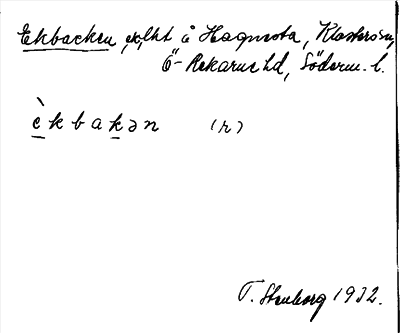 Ekbacken, xlht å Hagnesta, Klosters sn,
Ö-Rekarne hd, Söderm. l.
èkbakən (r)
T. Stenberg 1932.